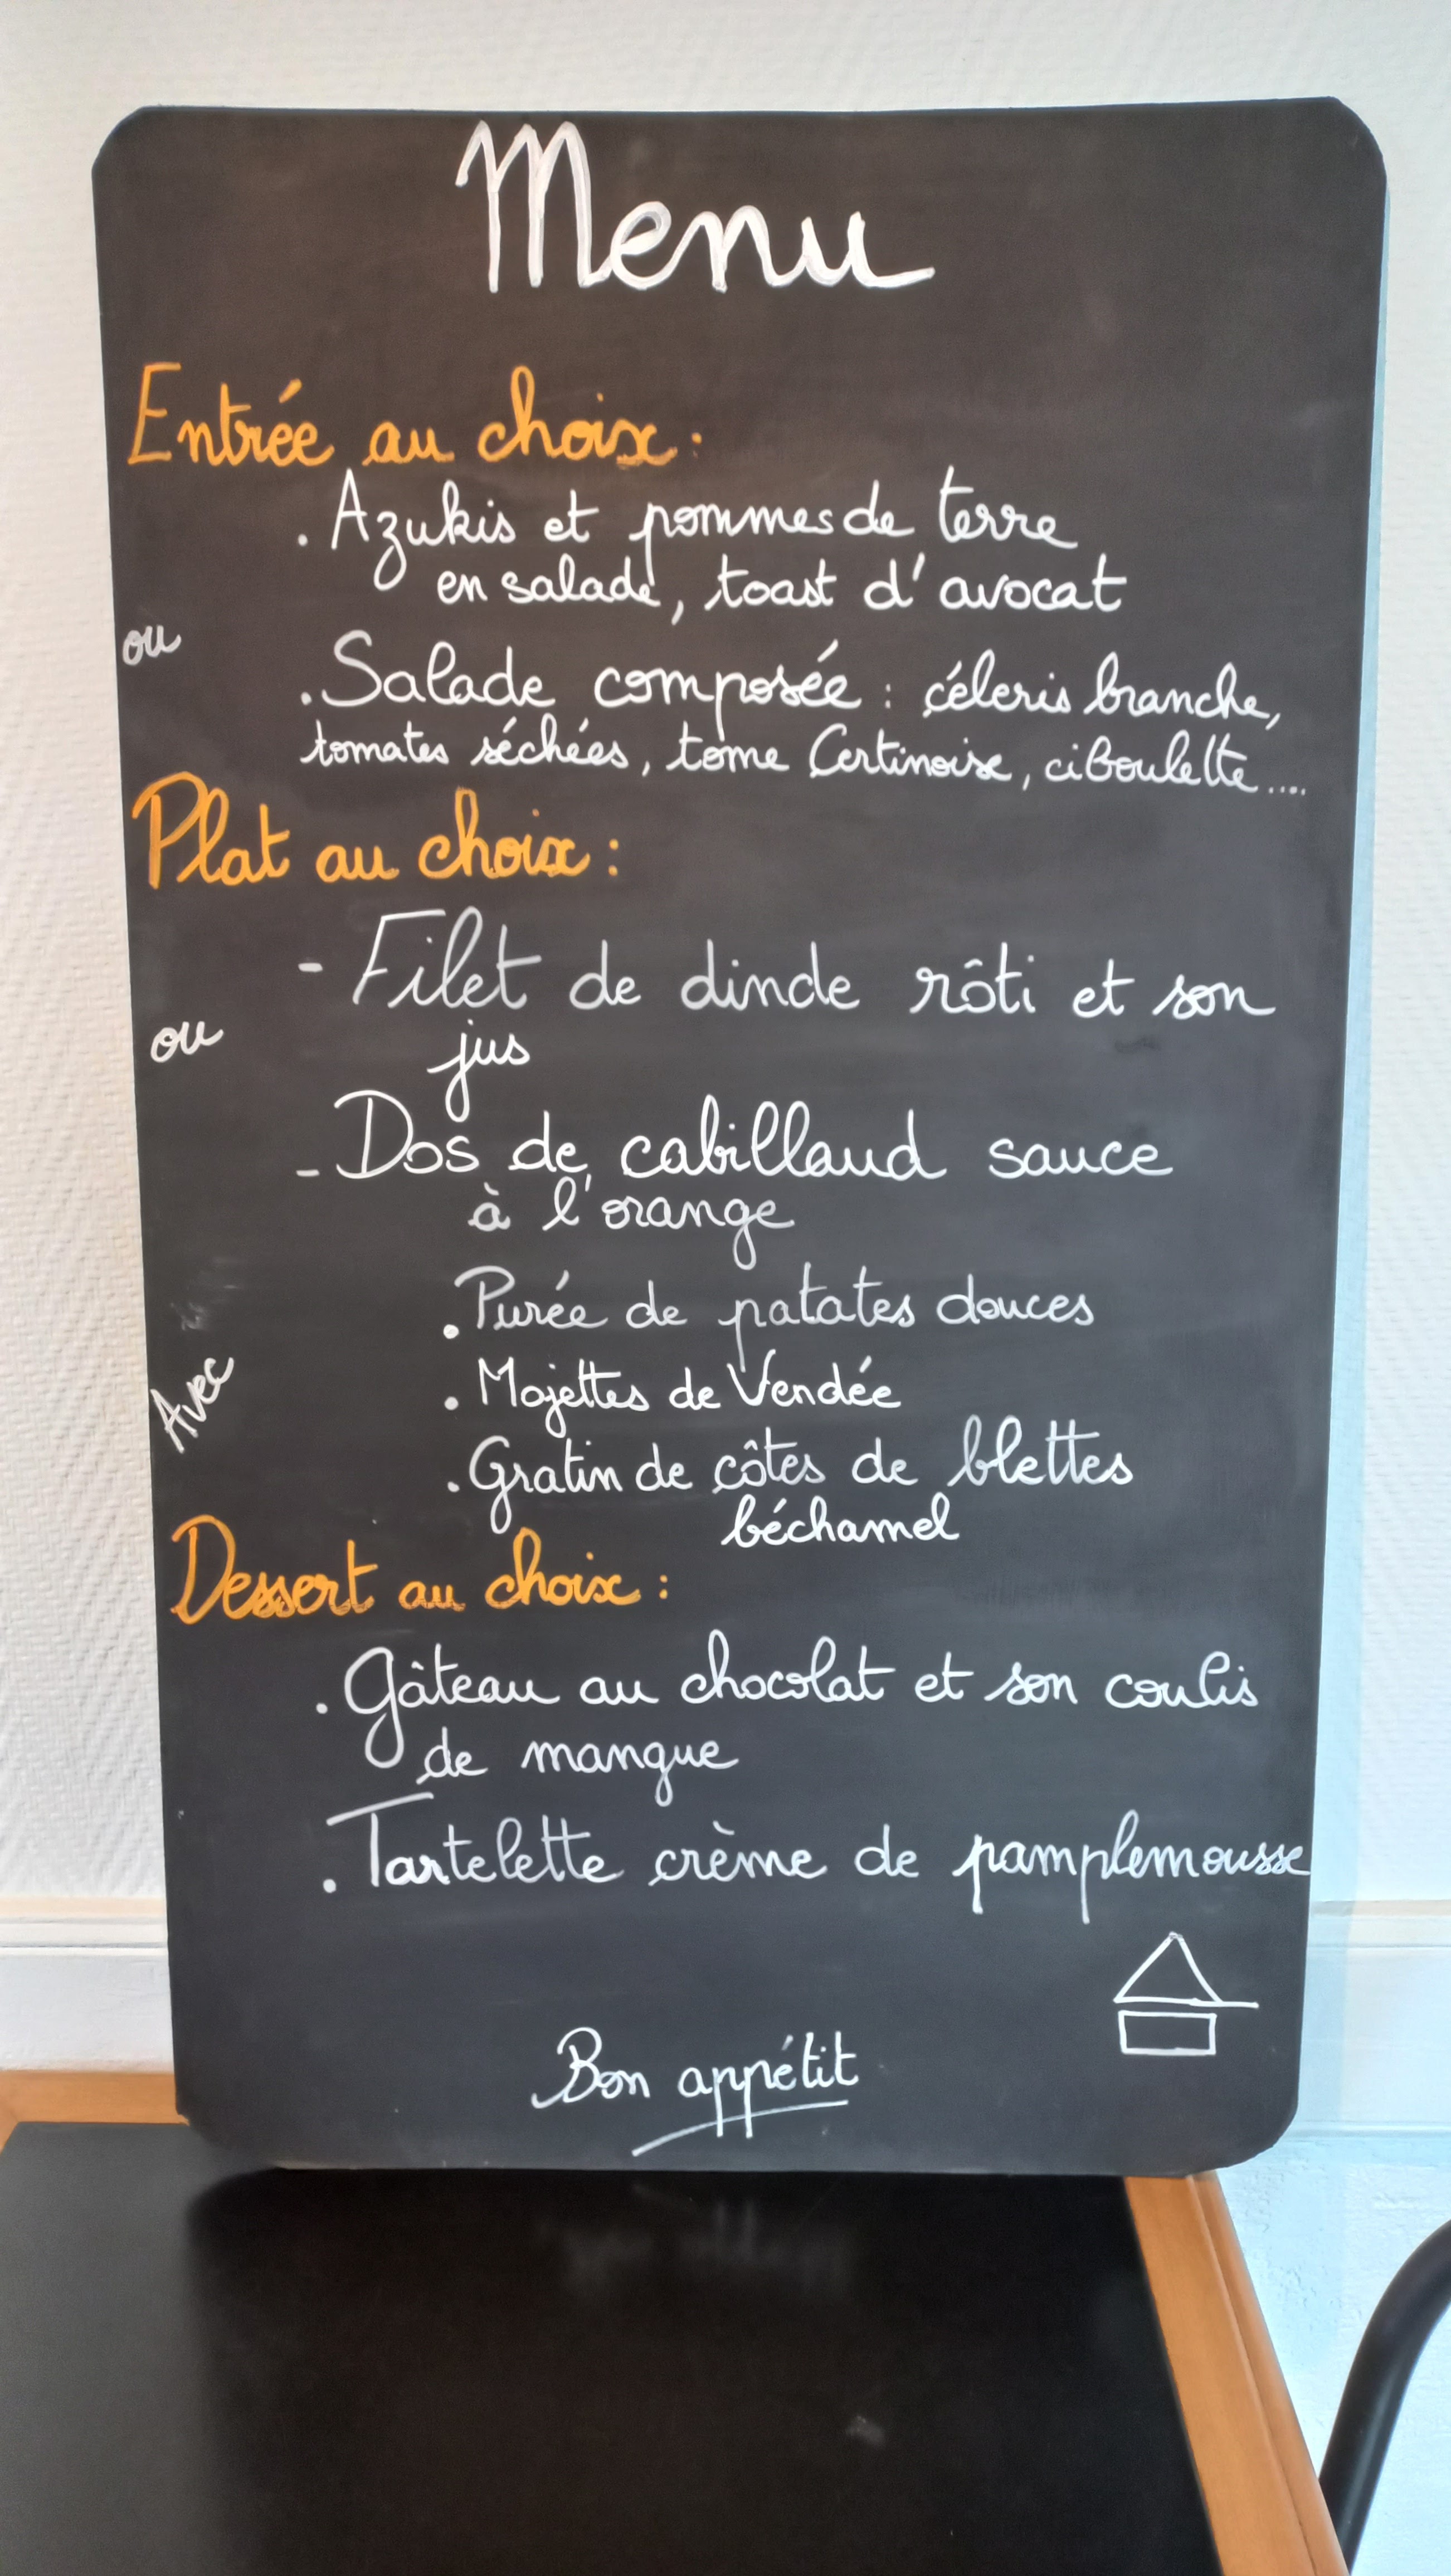 Menu
Entrée au choix :
. Azukis et pommes de terre
en salade, toast d'avocat
ou
. Salade composée : céleris branche,
tomates séchées, tome Certinoise, ciboulette....
Plat au choix :
- Filet de dinde rôti et son
jus
ou
- Dos de cabillaud sauce
à l'orange
. Purée de patates douces
Avec
. Mojettes de Vendée
. Gratin de côtes de blettes
béchamel
Dessert au choix :
. Gâteau au chocolat et son coulis
de mangue
. Tartelette crème de pamplemousse
Bon appétit